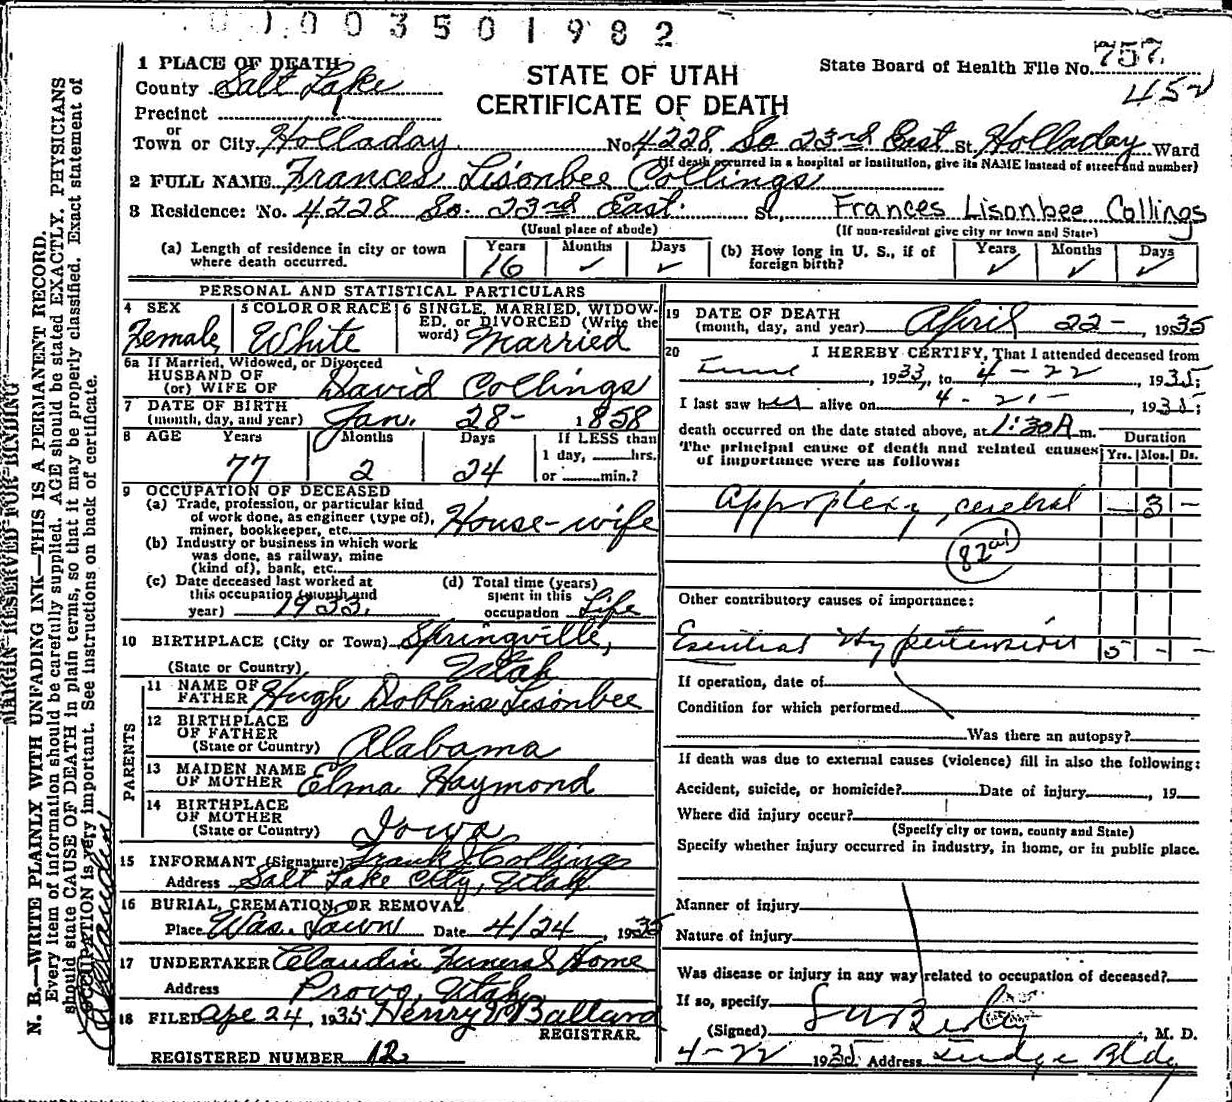 0 1 0 0 3 5 0 1 9 8 2
1 PLACE OF DEATH
County Salt Lake
Precinct 1
or
Town or City Holladay
STATE OF UTAH
CERTIFICATE OF DEATH
State Board of Health File No. 757
452
No. 4228 So 23rd East St. Holladay Ward
(If death occurred in a hospital or institution, give its NAME instead of street and number)
2 FULL NAME Frances Lisonbee Collings
3 Residence: No. 4228 So. 23rd East. St., Frances Lisonbee Collings
(Usual place of abode) (If non-resident give city or town and State)
(a) Length of residence in city or town where death occurred. Years 16 Months ✓ Days ✓
(b) How long in U. S., if of foreign birth? Years ✓ Months ✓ Days ✓
PERSONAL AND STATISTICAL PARTICULARS
4 SEX Female
5 COLOR OR RACE White
6 SINGLE, MARRIED, WIDOWED, or DIVORCED (Write the word) Married
6a If Married, Widowed, or Divorced
HUSBAND OF
(or) WIFE OF David Collings
7 DATE OF BIRTH
(month, day, and year) Jan. 28- 1858
8 AGE Years 77 Months 2 Days 24
If LESS than
1 day, ____hrs.
or ____min.?
9 OCCUPATION OF DECEASED
(a) Trade, profession, or particular kind
of work done, as engineer (type of),
miner, bookkeeper, etc. House-wife
(b) Industry or business in which work
was done, as railway, mine
(kind of), bank, etc.
(c) Date deceased last worked at
this occupation (month and
year) 1933.
(d) Total time (years)
spent in this
occupation Life
10 BIRTHPLACE (City or Town) Springville,
(State or Country) Utah
PARENTS
11 NAME OF
FATHER Hugh Dobbins Lisonbee
12 BIRTHPLACE
OF FATHER
(State or Country) Alabama
13 MAIDEN NAME
OF MOTHER Elma Haymond
14 BIRTHPLACE
OF MOTHER
(State or Country) Iowa
15 INFORMANT (Signature) Frank J Collings
Address Salt Lake City, Utah
16 BURIAL, CREMATION, OR REMOVAL
Place Was. Lawn Date 4/24, 1935
17 UNDERTAKER Claudin Funeral Home
Address Provo, Utah
18 FILED Apr 24, 1935 Henry Ballard
REGISTRAR.
REGISTERED NUMBER 12
19 DATE OF DEATH
(month, day, and year) April 22-, 1935
20 I HEREBY CERTIFY, That I attended deceased from
June, 1933, to 4-22, 1935;
I last saw her alive on 4-21-, 1935;
death occurred on the date stated above, at 1:30A m.
The principal cause of death and related causes
of importance were as follows:
Duration
Yrs. Mos. Ds.
Appoplexy, cerebral — 3 —
82a1
Other contributory causes of importance:
Essential Hypertension 5 - -
If operation, date of
Condition for which performed
Was there an autopsy?
If death was due to external causes (violence) fill in also the following:
Accident, suicide, or homicide? Date of injury, 19
Where did injury occur?
(Specify city or town, county and State)
Specify whether injury occurred in industry, in home, or in public place.
Manner of injury
Nature of injury
Was disease or injury in any way related to occupation of deceased?
If so, specify
(Signed) , M. D.
4-22 1935 Address Judge Bldg
MARGIN RESERVED FOR BINDING
N. B.—WRITE PLAINLY WITH UNFADING INK—THIS IS A PERMANENT RECORD.
Every item of information should be carefully supplied. AGE should be stated EXACTLY. PHYSICIANS
should state CAUSE OF DEATH in plain terms, so that it may be properly classified. Exact statement of
OCCUPATION is very important. See instructions on back of certificate.